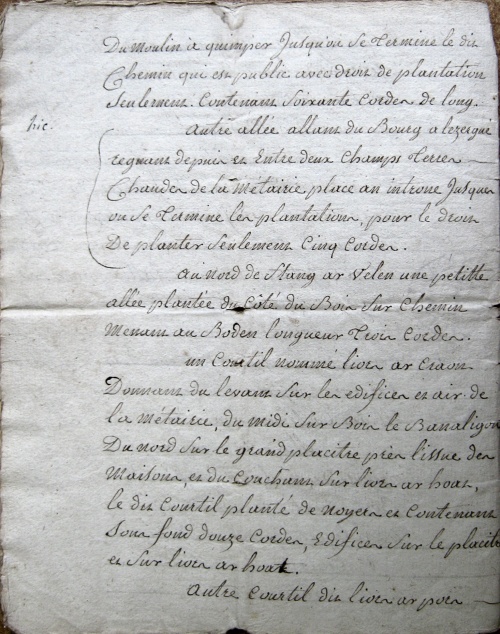 Du moulin a quimper Jusqu'ou se termine le dit
Chemin qui est public avec droit de plantation
seulement. Contenant soixante cordes de long.
hic. autre allée allant du Bourg a lezergué
regnant depuis et Entre deux champs terres
Chaudes de la métairie place an introne Jusques
ou se termine les plantations, pour le droit
De planter seulement Cinq cordes.
au nord de Stang ar velen une petitte
allée plantée du Coté du Bois sur chemin
menant au Boden longueur trois cordes.
un Courtil nommé liors ar craon
Donnant du levant sur les edifices et air de
la métairie, du midi sur Bois le Banaligou
Du nord sur le grand placitre près l'issue des
maisons, et du couchant sur liors ar hoat,
le dit Courtil planté de noyers et Contenant
sous fond douze Cordes, Edifices sur le placitre
et sur liors ar hoat.
autre Courtil dit liors ar poes